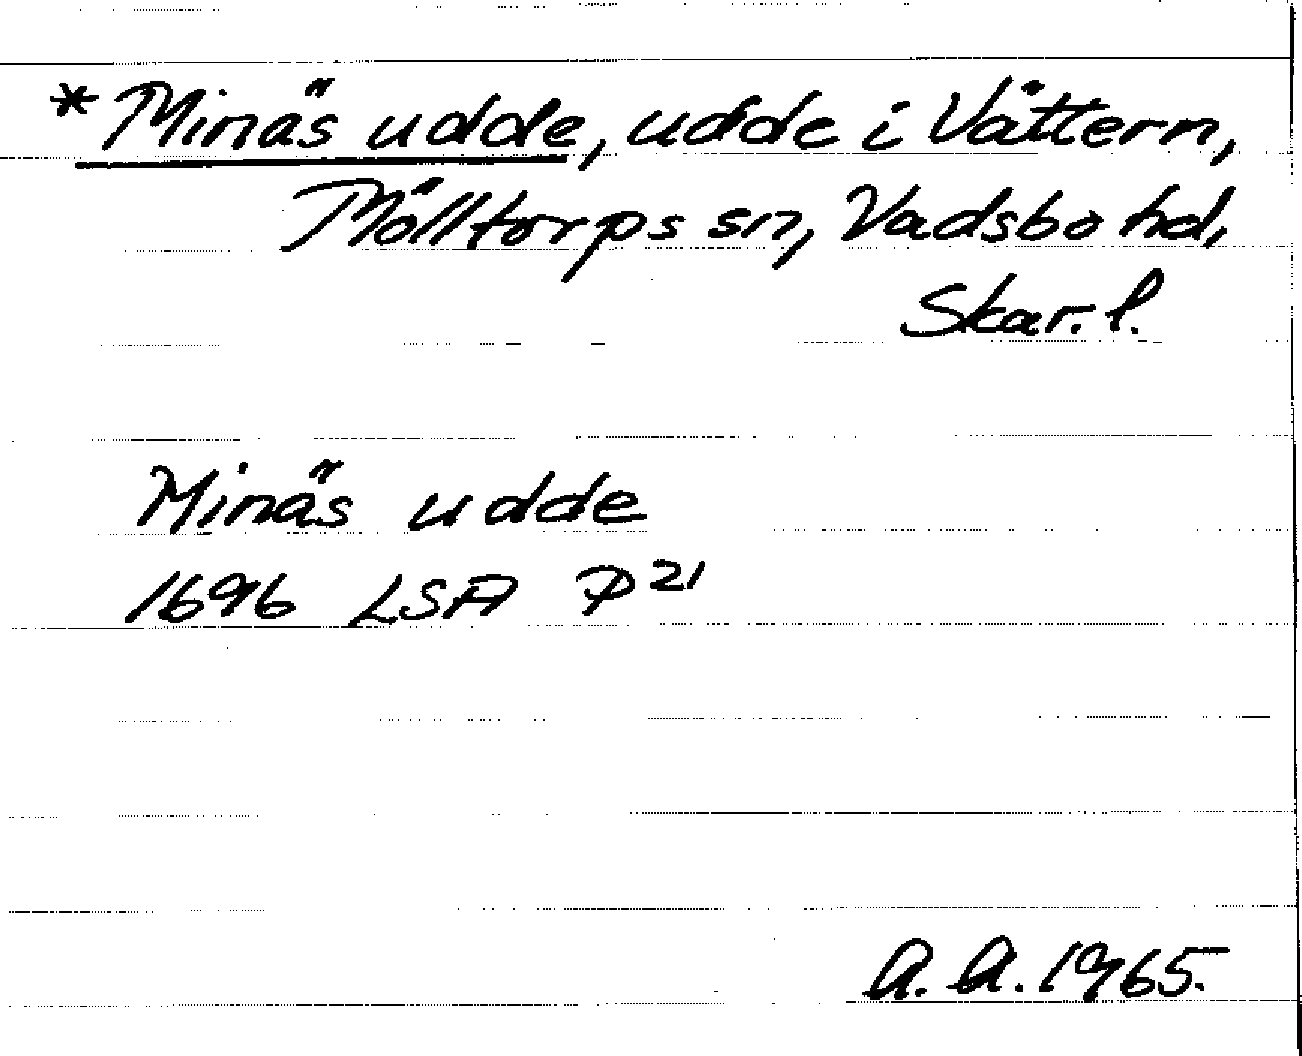 *Minäs udde, udde i Vättern,
Mölltorps sn, Vadsbo hd,
Skar. l.
Minäs udde
1696 LSA P 21
A. A. 1965.